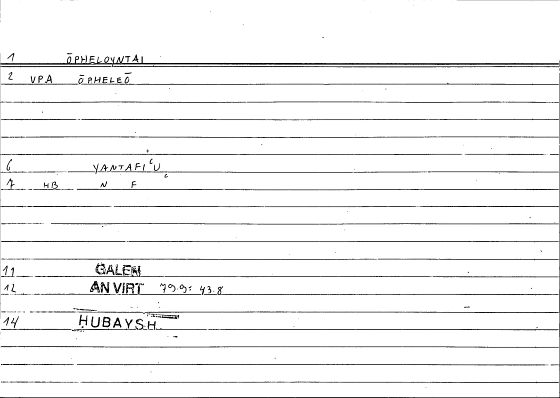 1 ŌPHELOYNTAI
2 VPA ŌPHELEŌ
6 YANTAFIʿU
7 HB N F
11 GALEN
12 AN VIRT 79.9: 43.8
14 HUBAYSH